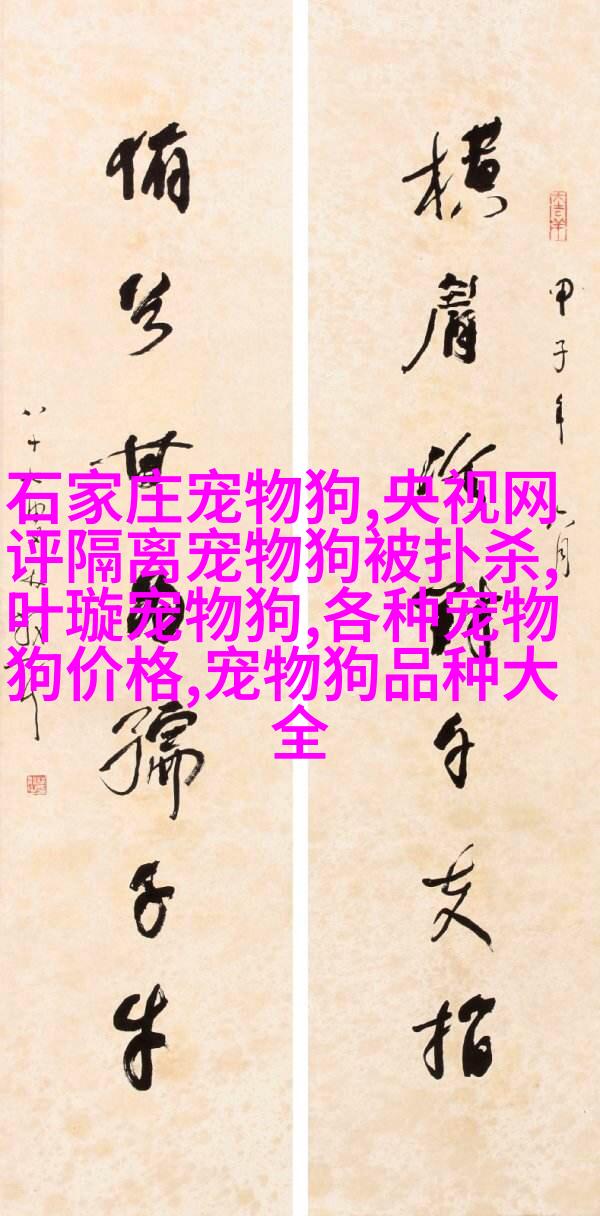 石家庄宠物狗,央视网
评隔离宠物狗被扑杀,
叶璇宠物狗,各种宠物
狗价格,宠物狗品种大
全
甲子年八月
横眉冷對千夫指
俯首甘為孺子牛